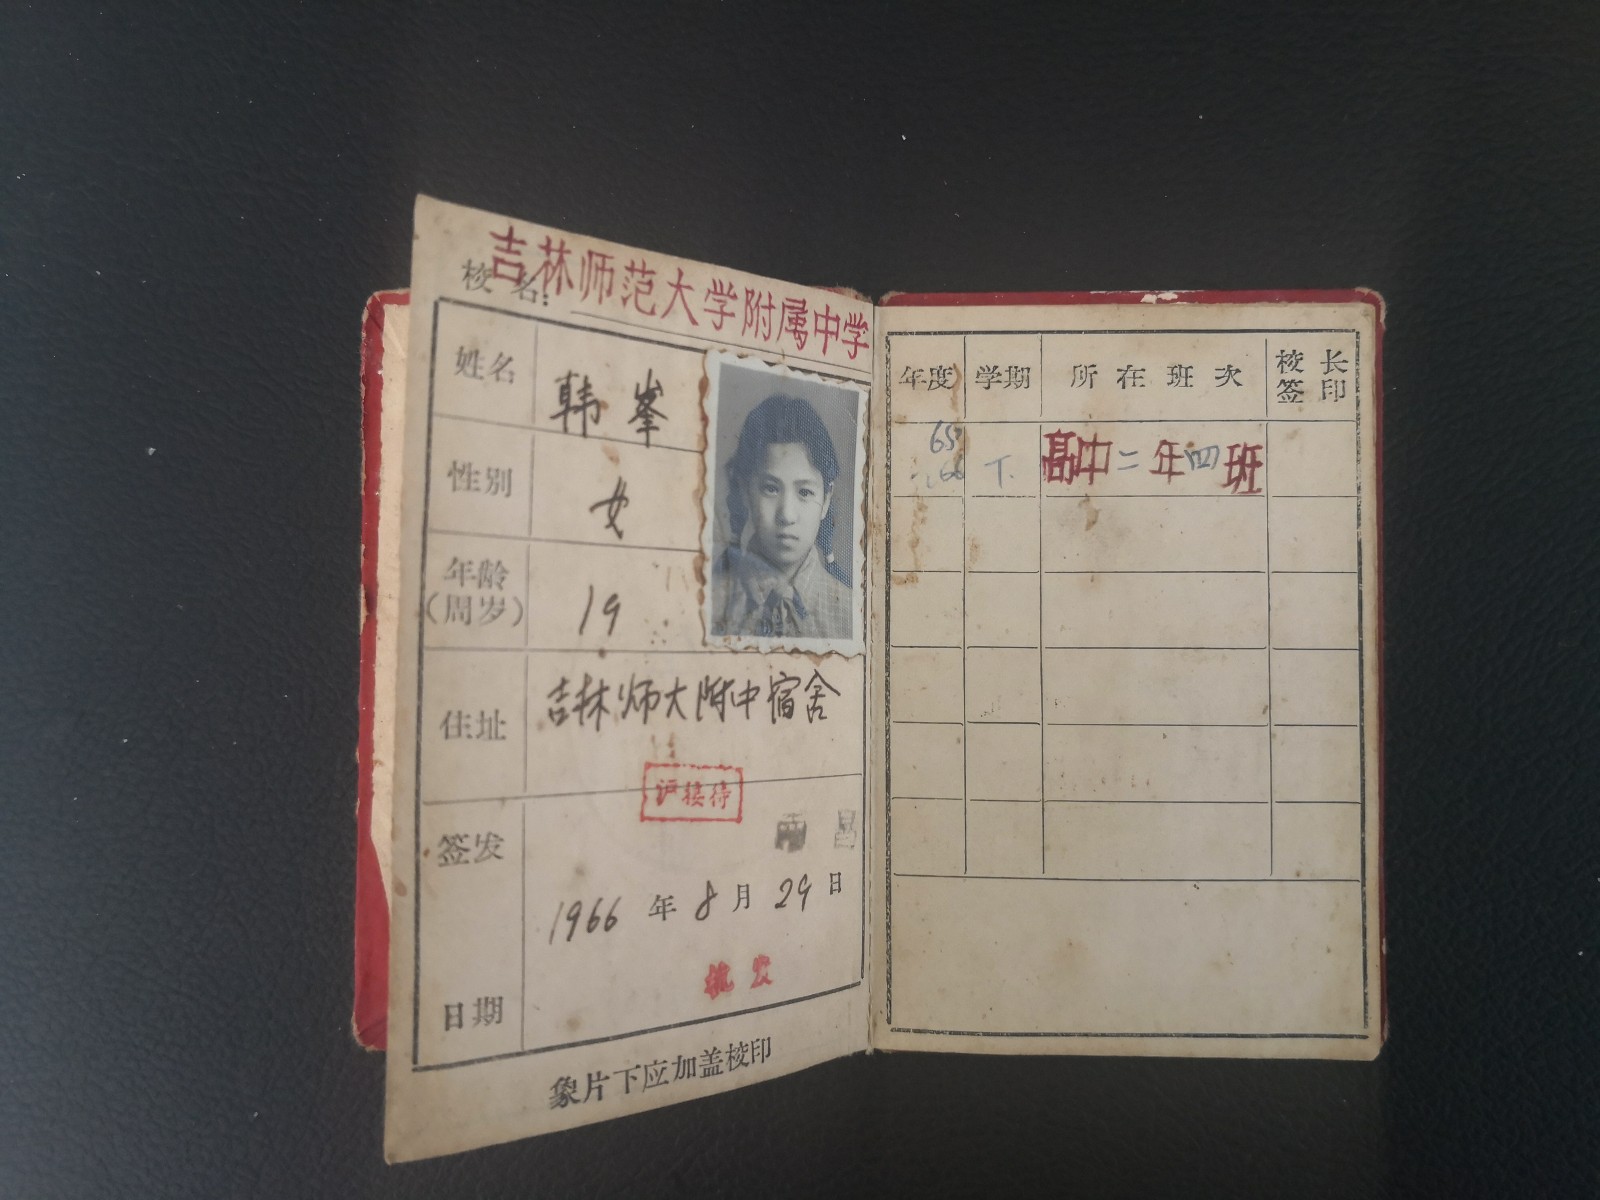 校名:吉林师范大学附属中学
姓名 韩峯
性别 女
年龄
(周岁) 19
住址 吉林师大附中宿舍
沪接待
南昌
签发
1966年8月29日
日期
象片下应加盖校印
年度 学期 所在班次 校长
签印
65
66 下 高中二年四班